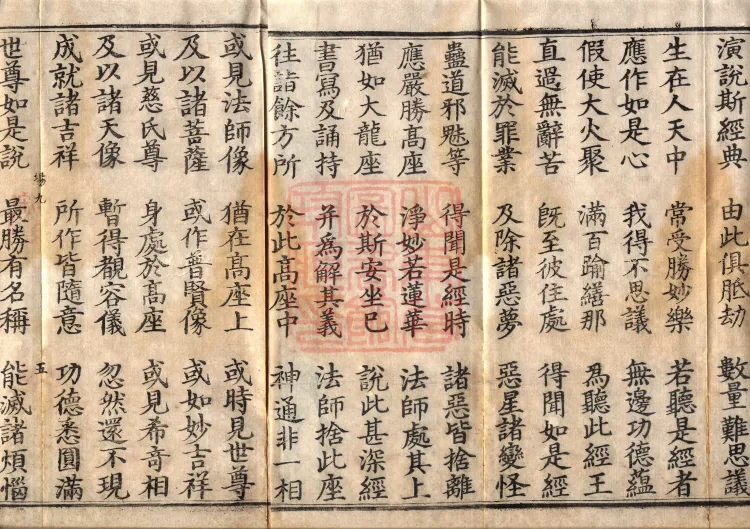 演說斯經典 由此俱胝劫 數量難思議
生在人天中 常受勝妙樂 若聽是經者
應作如是心 我得不思議 無邊功德蘊
假使大火聚 滿百踰繕那 為聽此經王
直過無辭苦 既至彼住處 得聞如是經
能滅於罪業 及除諸惡夢 惡星諸變怪
蠱道邪魅等 得聞是經時 諸惡皆捨離
應嚴勝高座 淨妙若蓮華 法師處其上
猶如大龍座 於斯安坐已 說此甚深經
書寫及誦持 并為解其義 法師捨此座
往詣餘方所 於此高座中 神通非一相
或見法師像 猶在高座上 或時見世尊
及以諸菩薩 或作普賢像 或如妙吉祥
或見慈氏尊 身處於高座 或見希奇相
及以諸天像 暫得覩容儀 忽然還不現
成就諸吉祥 所作皆隨意 功德悉圓滿
場九 五
世尊如是說 最勝有名稱 能滅諸煩惱